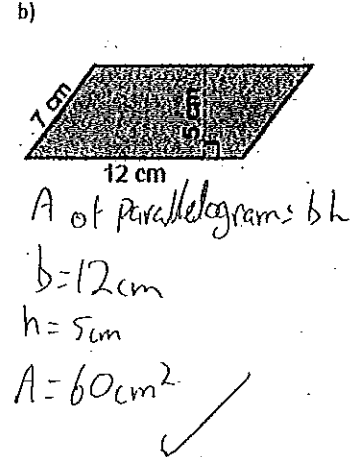 b)
7 cm
5 cm
12 cm
A of parallelogram = bh
b=12cm
h= 5cm
A=60cm²